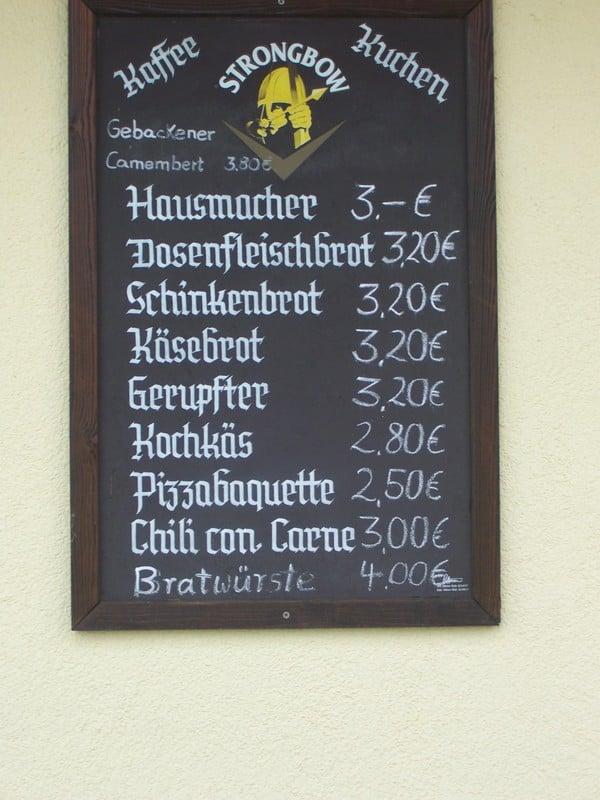 Kaffee STRONGBOW Kuchen
Gebackener
Camembert 3.80€
Hausmacher 3.-€
Dosenfleischbrot 3,20€
Schinkenbrot 3,20€
Käsebrot 3,20€
Gerupfter 3,20€
Kochkäs 2,80€
Pizzabaquette 2,50€
Chili con Carne 3,00€
Bratwürste 4.00€